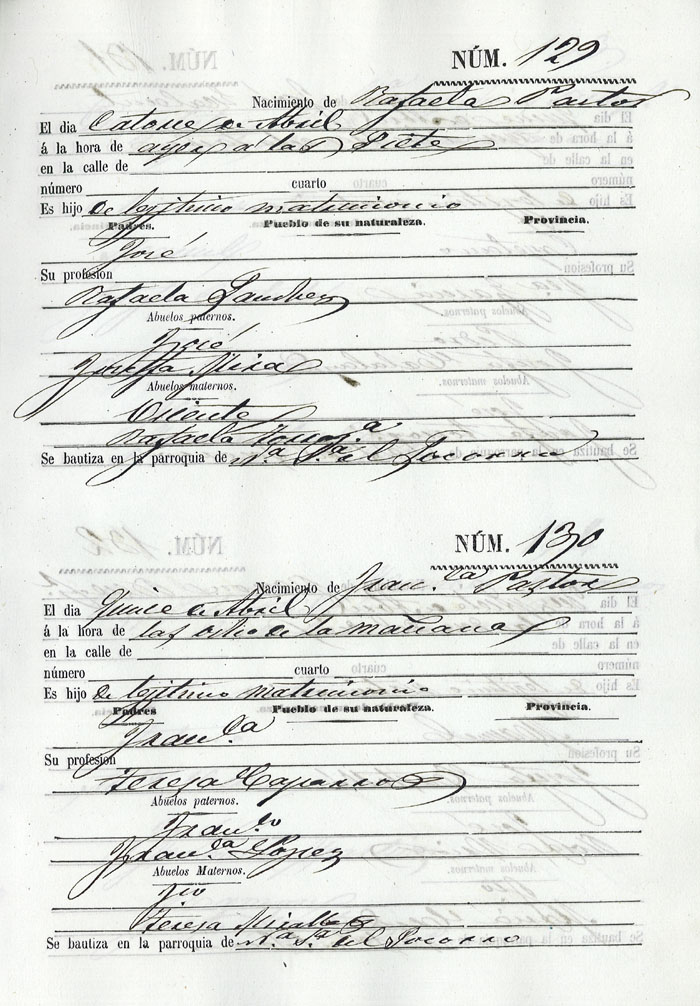 NÚM. 129
Nacimiento de Rafaela Pastor
El dia Catorce de Abril
á la hora de ayer á las Siete
en la calle de
número cuarto
Es hijo de legitimo matrimonio
Padres. Pueblo de su naturaleza. Provincia.
José
Su profesion
Rafaela Sanchez
Abuelos paternos.
José
Josefa Mira
Abuelos maternos.
Vicente
Rafaela
Se bautiza en la parroquia de N.ª S.ª del Socorro
NÚM. 130
Nacimiento de Fran.ca Pastor
El dia Quince de Abril
á la hora de las ocho de la mañana
en la calle de
número cuarto
Es hijo de legitimo matrimonio
Padres Pueblo de su naturaleza. Provincia.
Su profesion
Teresa Caparros
Abuelos paternos.
Fran.co
Fran.ca Lopez
Abuelos Maternos.
Teresa
Se bautiza en la parroquia de N.ª S.ª del Socorro